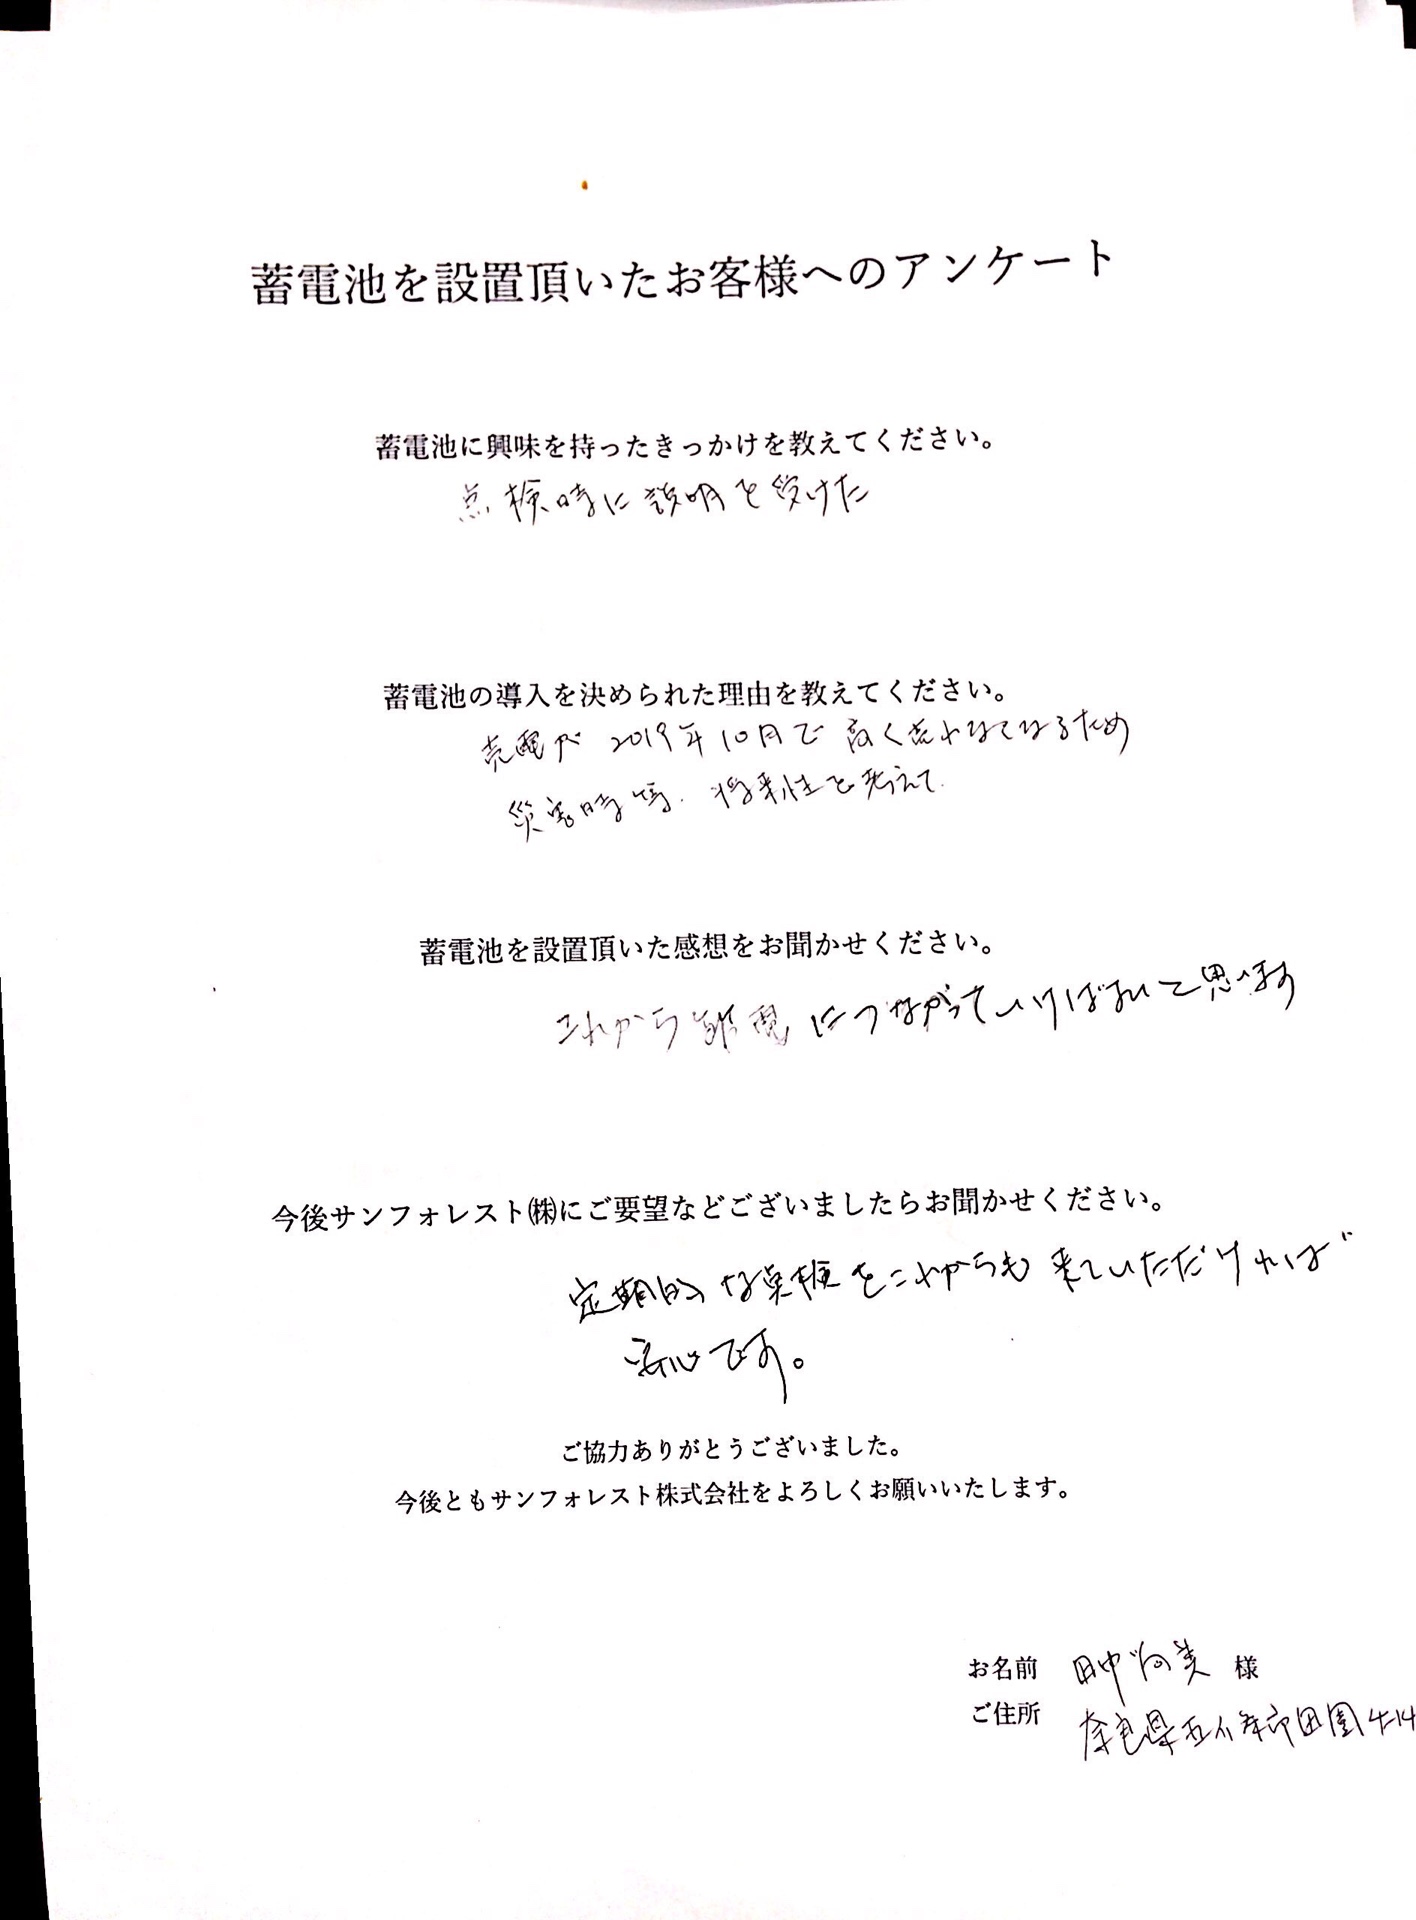 蓄電池を設置頂いたお客様へのアンケート
蓄電池に興味を持ったきっかけを教えてください。
点検時に説明を受けた
蓄電池の導入を決められた理由を教えてください。
売電が2019年10月で高く売れなくなるため
災害時等、将来性を考えて
蓄電池を設置頂いた感想をお聞かせください。
これから節電につながっていければよいと思います
今後サンフォレスト㈱にご要望などございましたらお聞かせください。
定期的な点検をこれからも来ていただければ
安心です。
ご協力ありがとうございました。
今後ともサンフォレスト株式会社をよろしくお願いいたします。
お名前 田中 美 様
ご住所 奈良県五條市田園4-14